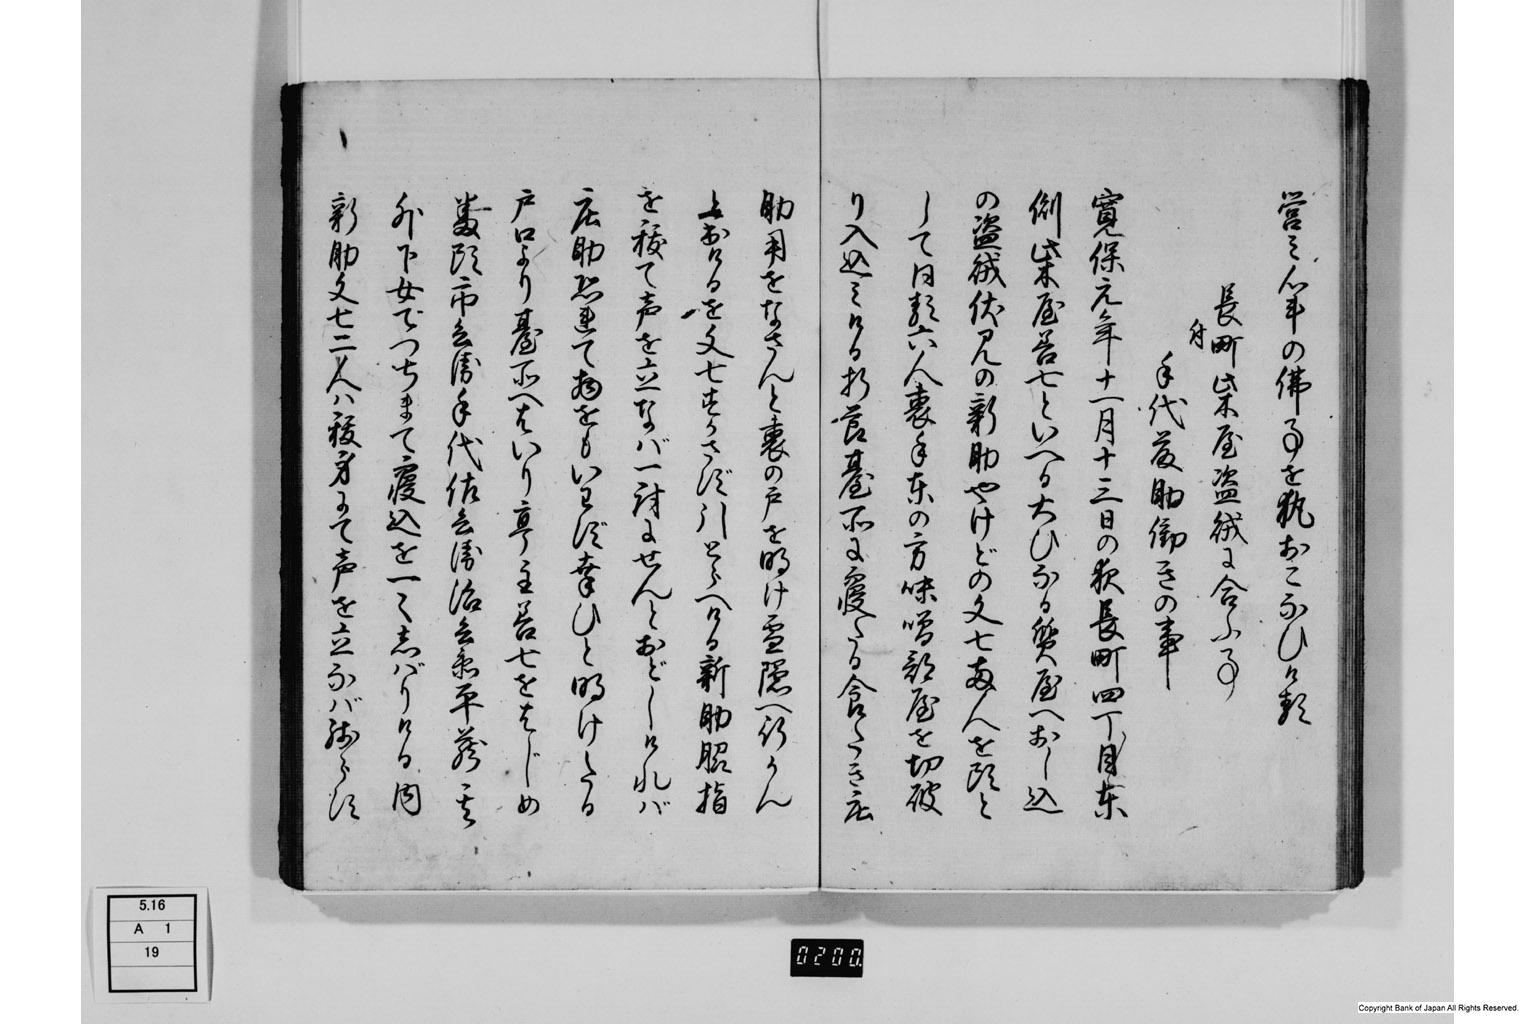 営ミ八軒の佛事を執おこなひける
長町柴屋盗賊に合ふ事
付 手代庄助働きの事
寛保元年十一月十三日の夜長町四丁目東
側柴屋善七といへる大ひなる質屋へおし込
の盗賊伏見の新助やけどの文七両人を頭と
して同類六人裏手東の方味噌部屋を切破
り入込ミける折節臺所に寝たる食たき庄
助用をなさんと裏の戸を明け雪隠へ行かん
と出けるを文七すかさず引とらへける新助脇指
を抜て声を立なバ一討にせんとおどしけれバ
庄助恐連て物をもいわず幸ひと明けたる
戸口より臺所へはいり亭主善七をはじめ
番頭市兵衛手代佐兵衛治兵衛平蔵其
外下女でつちまて寝込を一々志ばりける内
新助文七二人ハ抜身にて声を立なバ
5.16
A 1
19
0200.
Copyright Bank of Japan All Rights Reserved.